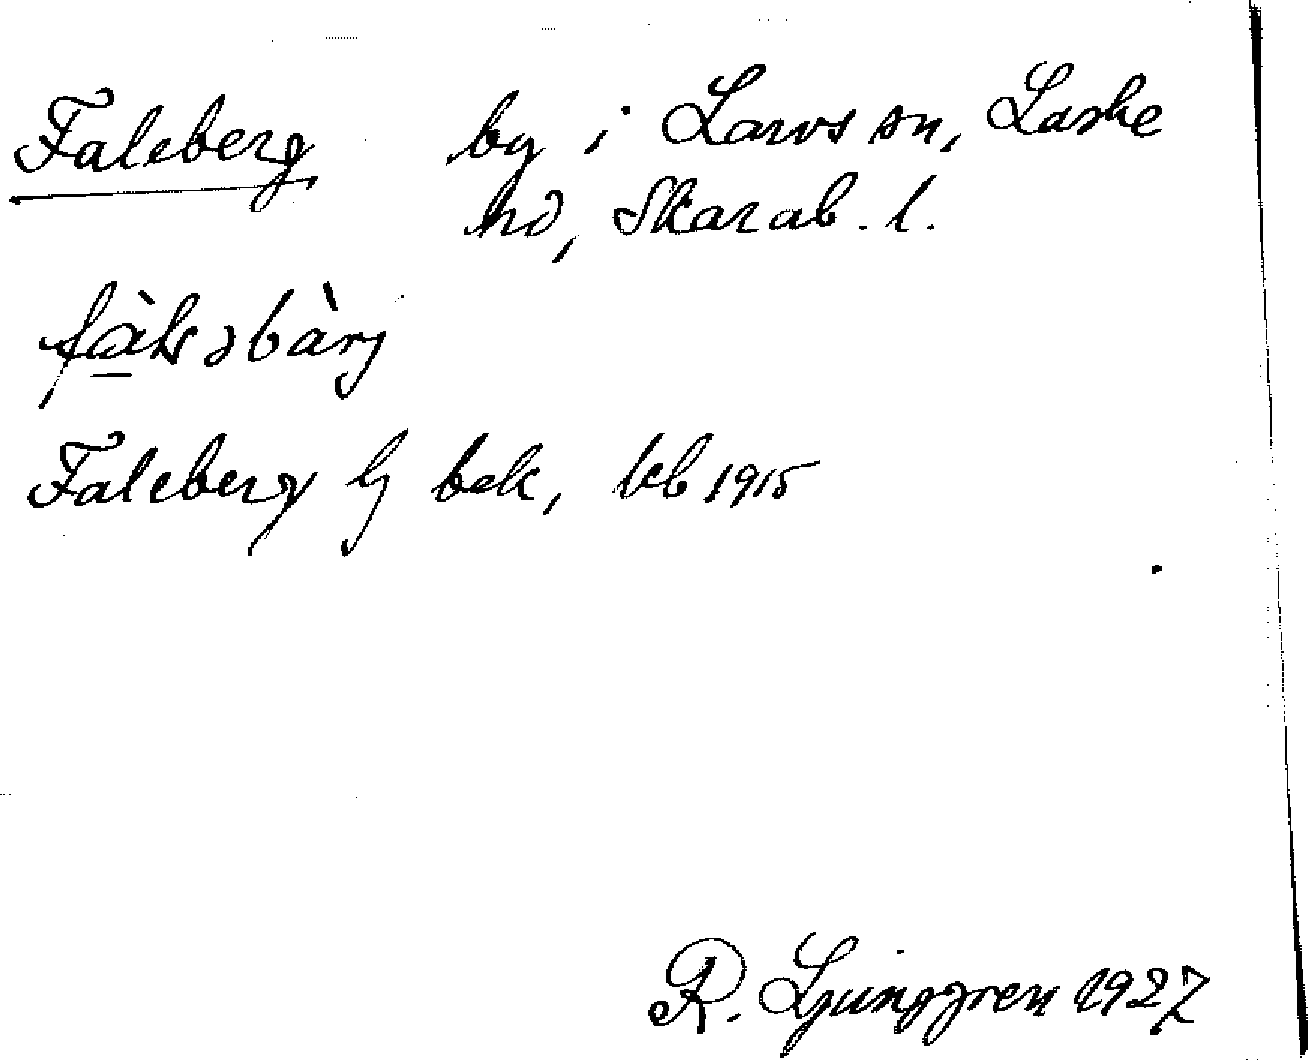 Faleberg by i Larvs sn, Laske
hd, Skarab. l.
Faleberg bek, kb 1915
R. Ljunggren 1927